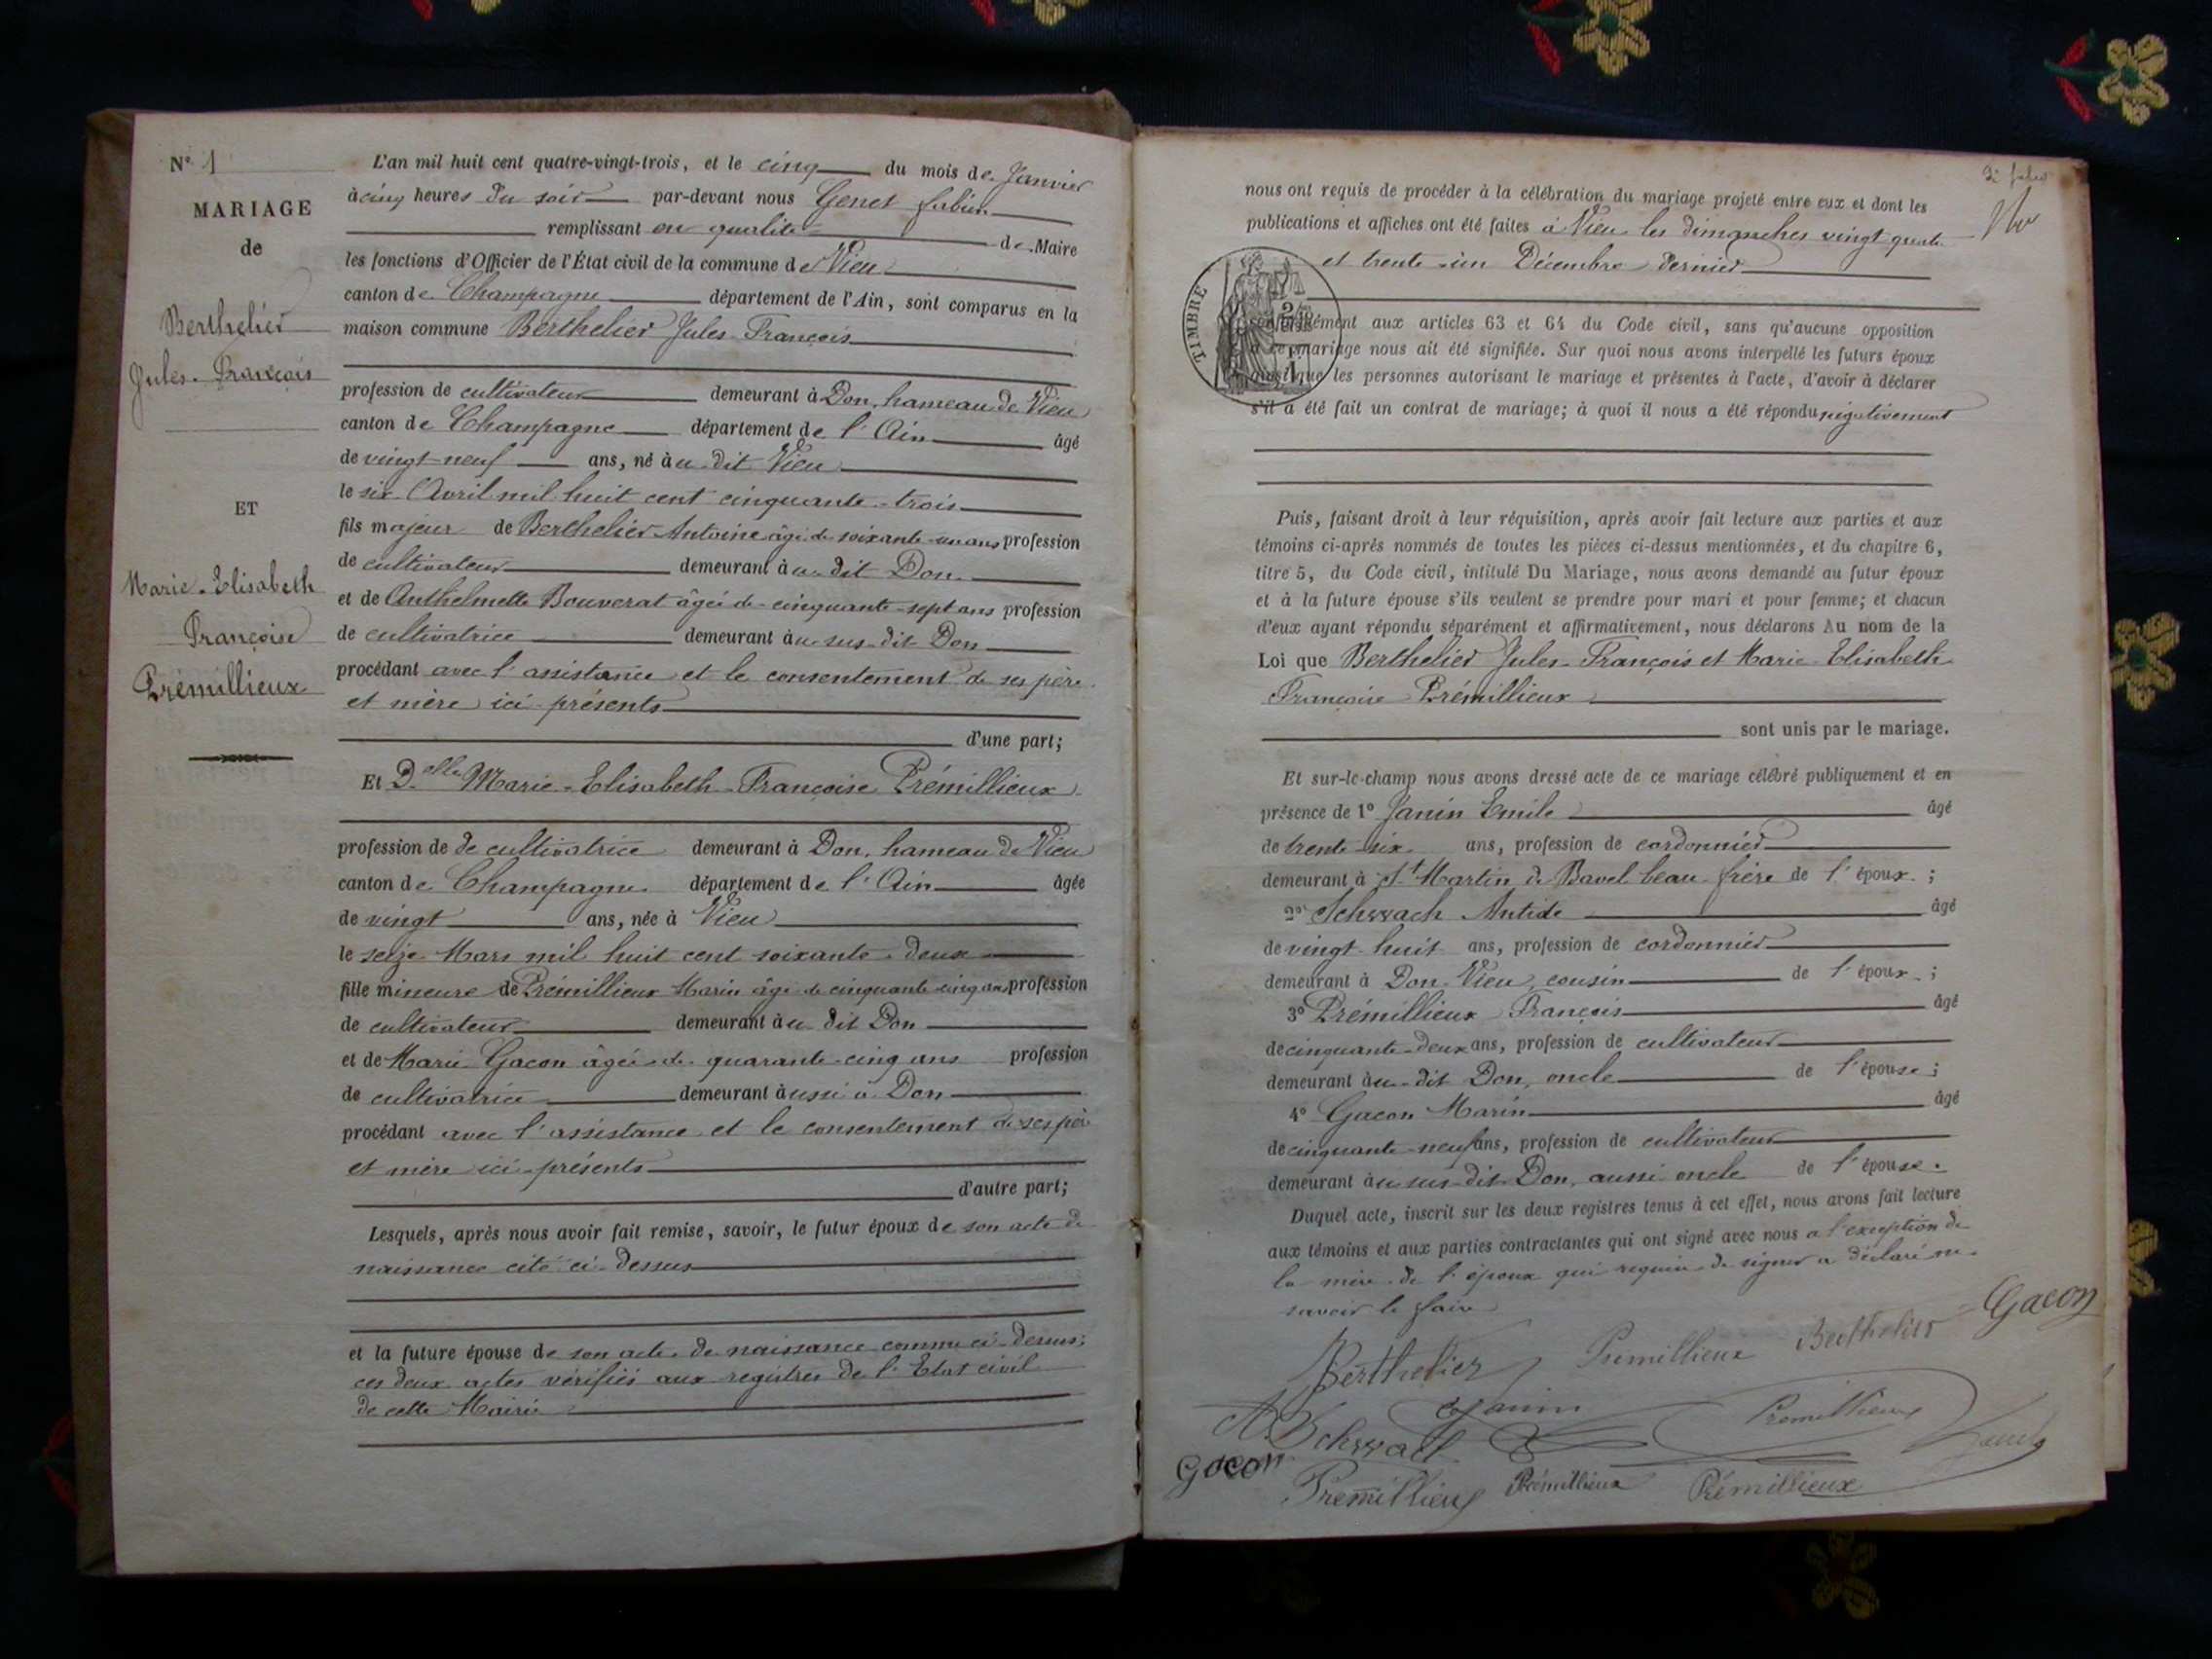 N° 1
MARIAGE
de
Berthelier
Jules-François
ET
Marie-Elisabeth
Françoise
Prémillieux
L'an mil huit cent quatre-vingt-trois, et le cinq du mois de Janvier
à cinq heures du soir par-devant nous Genet Fabien
remplissant en qualité de Maire
les fonctions d'Officier de l'État civil de la commune de Vieu
canton de Champagne département de l'Ain, sont comparus en la
maison commune Berthelier Jules-François
profession de cultivateur demeurant à Don, hameau de Vieu
canton de Champagne département de l'Ain âgé
de vingt-neuf ans, né au dit Vieu
le six Avril mil huit cent cinquante-trois
fils majeur de Berthelier Antoine âgé de soixante-un ans profession
de cultivateur demeurant au dit Don
et de Anthelmette Bouverat âgée de cinquante-sept ans profession
de cultivatrice demeurant au sus-dit Don
procédant avec l'assistance et le consentement de ses père
et mère ici présents
d'une part;
Et Delle Marie-Elisabeth-Françoise Prémillieux
profession de de cultivatrice demeurant à Don, hameau de Vieu
canton de Champagne département de l'Ain âgée
de vingt ans, née à Vieu
le seize Mars mil huit cent soixante-deux
fille mineure de Prémillieux Marin âgé de cinquante cinq ans profession
de cultivateur demeurant au dit Don
et de Marie Gacon âgée de quarante-cinq ans profession
de cultivatrice demeurant aussi à Don
procédant avec l'assistance et le consentement de ses père
et mère ici présents
d'autre part;
Lesquels, après nous avoir fait remise, savoir, le futur époux de son acte de
naissance cité ci-dessus
et la future épouse de son acte de naissance comme ci-dessus;
ces deux actes vérifiés aux registres de l'Etat civil
de cette Mairie
nous ont requis de procéder à la célébration du mariage projeté entre eux et dont les
publications et affiches ont été faites à Vieu les dimanches vingt quatre
et trente-un Décembre dernier
TIMBRE
conformément aux articles 63 et 64 du Code civil, sans qu'aucune opposition
à ce mariage nous ait été signifiée. Sur quoi nous avons interpellé les futurs époux
ainsi que les personnes autorisant le mariage et présentes à l'acte, d'avoir à déclarer
s'il a été fait un contrat de mariage; à quoi il nous a été répondu négativement
Puis, faisant droit à leur réquisition, après avoir fait lecture aux parties et aux
témoins ci-après nommés de toutes les pièces ci-dessus mentionnées, et du chapitre 6,
titre 5, du Code civil, intitulé Du Mariage, nous avons demandé au futur époux
et à la future épouse s'ils veulent se prendre pour mari et pour femme; et chacun
d'eux ayant répondu séparément et affirmativement, nous déclarons Au nom de la
Loi que Berthelier Jules-François et Marie-Elisabeth
Françoise Prémillieux
sont unis par le mariage.
Et sur-le-champ nous avons dressé acte de ce mariage célébré publiquement et en
présence de 1° Janin Emile âgé
de trente-six ans, profession de cordonnier
demeurant à St Martin de Bavel beau-frère de l'époux;
2° Schwach Antide âgé
de vingt-huit ans, profession de cordonnier
demeurant à Don-Vieu, cousin de l'époux;
3° Prémillieux François âgé
de cinquante-deux ans, profession de cultivateur
demeurant au-dit Don, oncle de l'épouse;
4° Gacon Marin âgé
de cinquante-neuf ans, profession de cultivateur
demeurant au sus-dit Don, aussi oncle de l'épouse.
Duquel acte, inscrit sur les deux registres tenus à cet effet, nous avons fait lecture
aux témoins et aux parties contractantes qui ont signé avec nous a l'exception de
la mère de l'époux qui requise de signer a déclaré ne
savoir le faire
Berthelier Prémillieux Berthelier Gacon
Janin Premillieux
Gacon Premillieux Prémillieux Prémillieux